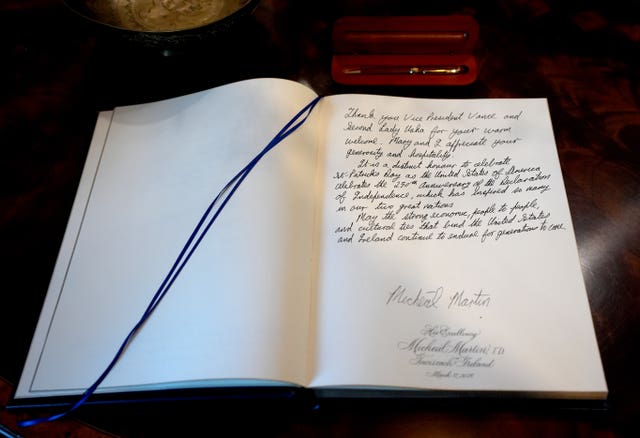 Thank you Vice President Vance and
Second Lady Usha for your warm
welcome. Mary and I appreciate your
generosity and hospitality.
It is a distinct honour to celebrate
St. Patricks Day as the United States of America
celebrates the 250th Anniversary of the Declaration
of Independence, which has inspired so many
in our two great nations
May the strong economic, people to people,
and cultural ties that bind the United States
and Ireland continue to endure for generations to come.
Micheál Martin
His Excellency
Micheál Martin, TD
Taoiseach Ireland
March 17,